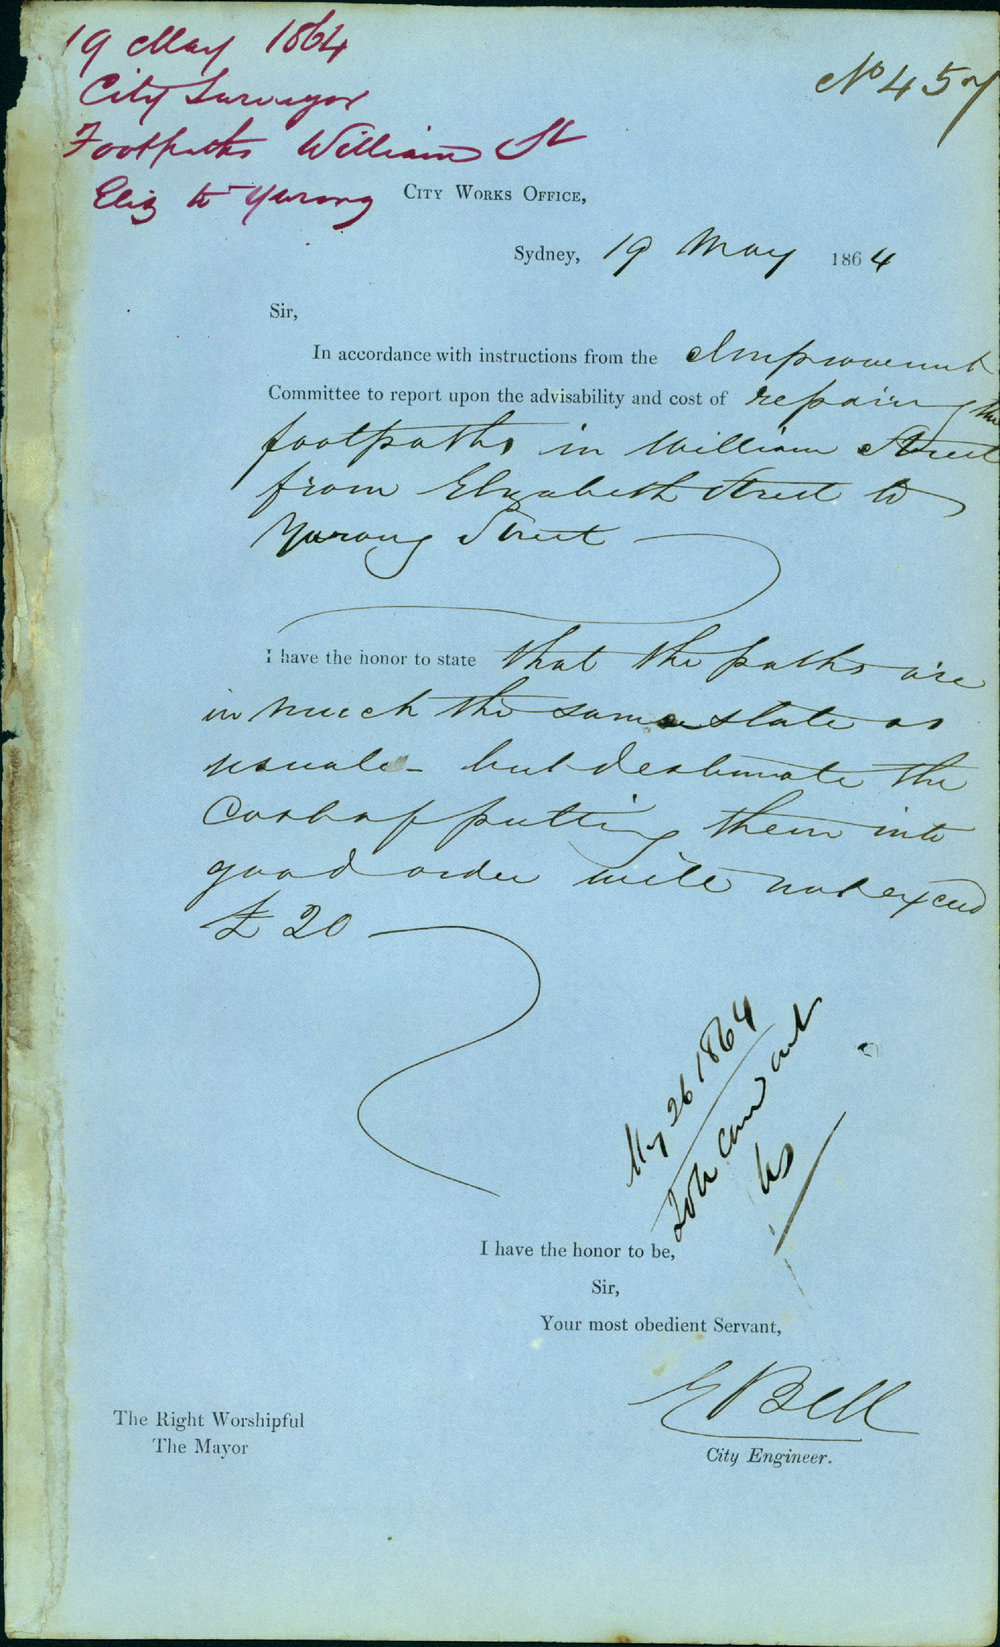 19 May 1864
City Surveyor
Footpaths William St
Eliz to Yurong
No 457
City Works Office,
Sydney, 19 May 1864
Sir,
In accordance with instructions from the Improvement
Committee to report upon the advisability and cost of repairing the
footpaths in William Street
from Elizabeth Street to
Yurong Street
I have the honor to state that the paths are
in much the same state as
usual - but I estimate the
Cost of putting them into
good order will not exceed
£20
May 26 1864
To be carried out
I have the honor to be,
Sir,
Your most obedient Servant,
E Bell
City Engineer.
The Right Worshipful
The Mayor